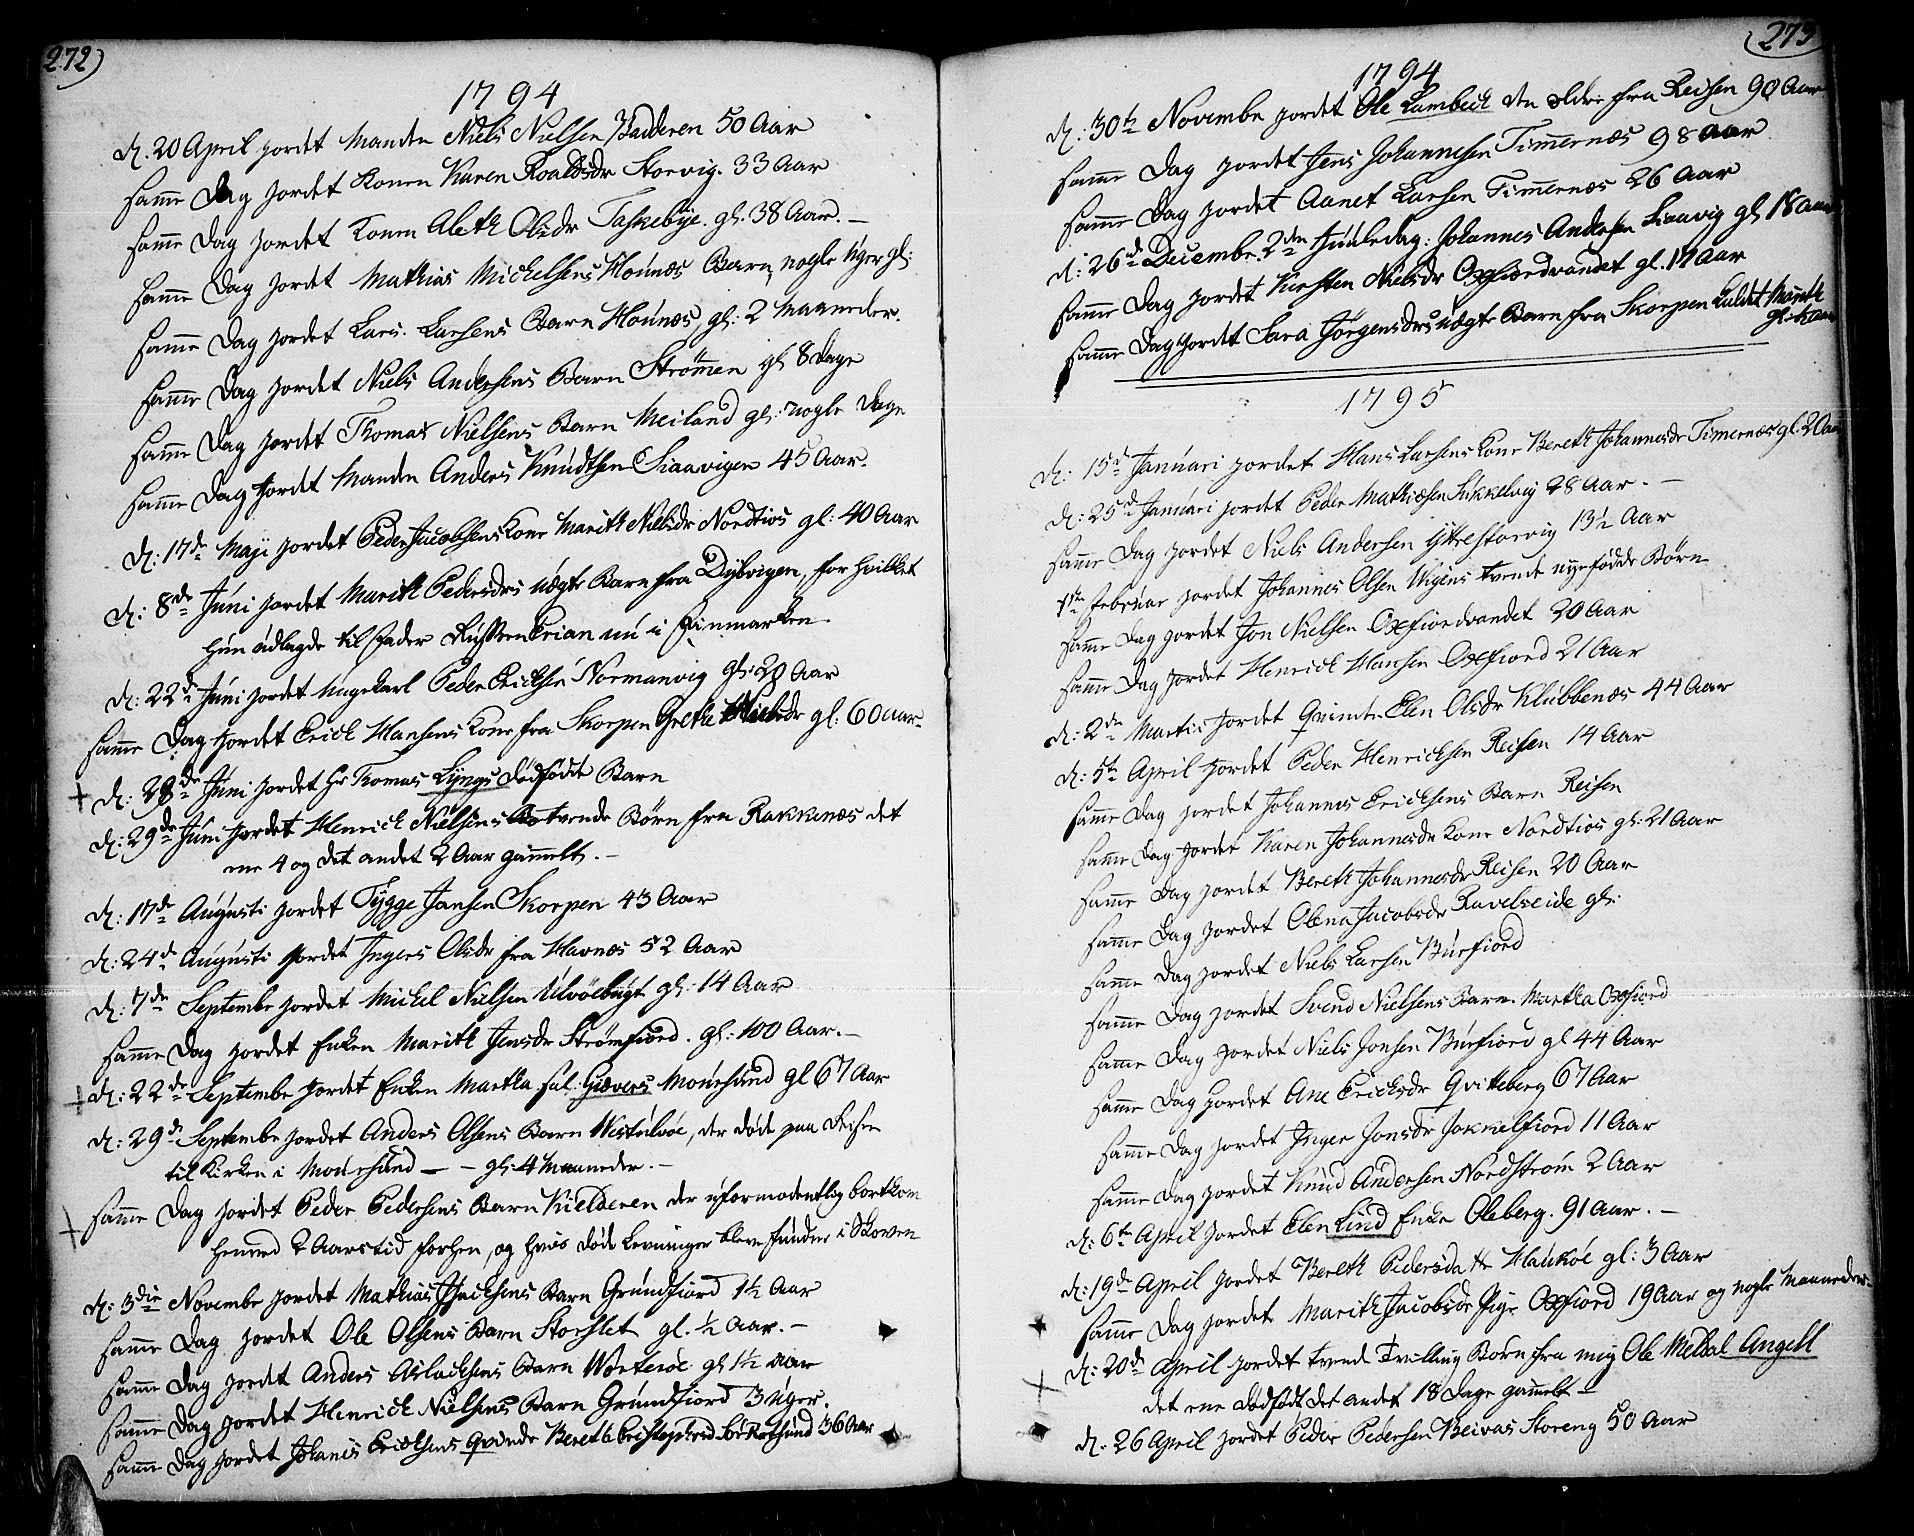 272)
1794
d. 20 April jordet Manden Niels Nielsen Badderen 50 Aar
Samme Dag jordet Konen Karen Roaldsdr Storvig. 33 Aar
Samme Dag jordet Konen Aleth Olsdr Taskebye. gl. 38 Aar. –
Samme Dag jordet Mathias Michelsens Hounæs Barn nogle Uger gl:
Samme Dag jordet Lars Larsens Barn Hounæs, gl: 2 Maaneder.
Samme Dag jordet Niels Andersens Barn Strömen gl 8 Dage
Samme Dag jordet Thomas Nielsens Barn Meiland gl: nogle Dage
Samme Dag jordet Manden Anders Knudtsen Siaavigen 45 Aar.
d: 17de Maji jordet Peder Jacobsens Kone Marith Nielsdr Nordtios gl: 40 Aar
d: 8de Juni jordet Marith Pedersdrs uægte Barn fra Dybvigen, for hvilket
hun udlagde til Fader Russen Erian nu i Finmarken.
d: 22de Juni jordet Ungekarl Peder Ericksen Normanvig gl: 29 Aar
Samme Dag jordet Erick Hansens Kone fra Skorpen Grethe Nielsdr gl: 60 aar.
+ d: 28de Juni jordet Hr Thomas Lyngs dødfødte Barn
d: 29de Juni jordet Henrick Nielsens tvende Børn fra Rakkenæs det
ene 4 og det andet 2 Aar gammelt. –
d: 17de Augusti jordet Tygge Jansen Skorpen 43 Aar
d: 24de Augusti jordet Ingers Olsdr fra Havnæs 52 Aar
d: 7de Septembr jordet Michel Nielsen Ulvöebugt gl: 14 Aar
Samme Dag jordet Enken Marith Jensdr Strömfiord. gl: 100 Aar. –
+ d: 22de Septembr jordet Enken Martha sal. Giævers Moursund gl 67 Aar
d: 29de Septembr jordet Anders Olsens Barn Westulvöe, der døde paa Reisen
til Kirken i Moursund – – gl: 4 Maaneder. –
+ Samme Dag jordet Peder Pedersens Barn Kielderen der uformodentlig bortkom
henved 2 Aarstid forhen, og hvis døde Levninger bleve funden i Skoven
d: 3die Novembr jordet Mathias Isachsens Barn Grundfiord 1½ Aar
Samme Dag jordet Ole Olsens Barn Storslet gl. ½ Aar. –
Samme Dag jordet Anders Aslachsens Barn Worteröe gl 1½ aar
Samme Dag jordet Henrick Nielsens Barn Grundfiord 3 Uger.
Samme Dag jordet Johanis Ericksens Qvinde Bereth 36 Aar
273)
1794
d: 30te Novembr jordet Ole Lambeck den eldre fra Reisen 90 Aar.
Samme Dag jordet Jens Johannesen Timmernæs 98 aar
Samme Dag jordet Aanet Larsen Timmernæs 26 Aar
d: 26de Decembr 2den Juuledag: Johannes Andersen Siaavig gl 18 aar
Samme Dag jordet Kirsten Nielsdr Oxfiordvandet gl. 17 Aar
Samme Dag jordet Sara Jörgensdrs uægte Barn fra Skorpen kaldet Marith
gl: aar
1795
d: 15de Januari jordet Hans Larsens Kone Bereth Johannesdr Timernæs gl. 20 aar
d: 25de Januari jordet Peder Mathiesen Sukkelvig 28 Aar. –
Samme Dag jordet Niels Andersen Yttrestorvig 13½ Aar
1te Februar jordet Johannes Olsen Wigens tvende nyefødde Børn
Samme Dag jordet Jon Nielsen Oxfiordvandet 20 Aar
Samme Dag jordet Henrich Hansen Oxfiord 21 Aar
d: 2de Martii jordet Qvinden Elen Olsdr Klubbenæs 44 Aar
d: 5te April jordet Peder Henricksen Reisen 14 Aar
Samme Dag jordet Johannes Ericksens Barn Reisen
Samme Dag jordet Karen Johannesdr Kone Nordtios gl: 21 Aar
Samme Dag jordet Bereth Johannesdr Reisen 20 Aar
Samme Dag jordet Olena Jacobsdr Ravelseide gl:
Samme Dag jordet Niels Larsen Burfiord
Samme Dag jordet Svend Nielsens Barn Martha Oxfiord
Samme Dag jordet Niels Jonsen Burfiord gl 44 Aar
Samme Dag jordet Ane Ericksdr Qvitteberg 67 Aar
Samme Dag jordet Inger Jonsdr Jokkelfiord 11 Aar
Samme Dag jordet Knud Andersen Nordström 2 Aar
d: 6te April jordet Elen Lind Enke Oleberg. 91 Aar. –
d: 19de April jordet Bereth Pedersdatter Haukøe gl: 3 Aar
Samme Dag jordet Marith Jacobsdr Pige Oxfiord 19 Aar og nogle Maaneder.
+ d: 20de April jordet tvende Tvilling Børn fra mig Ole Melsal Angell
det ene dødfødt det andet 18 Dage gammelt –
d. 26 April jordet Peder Pedersen Beivas Storeng 50 Aar